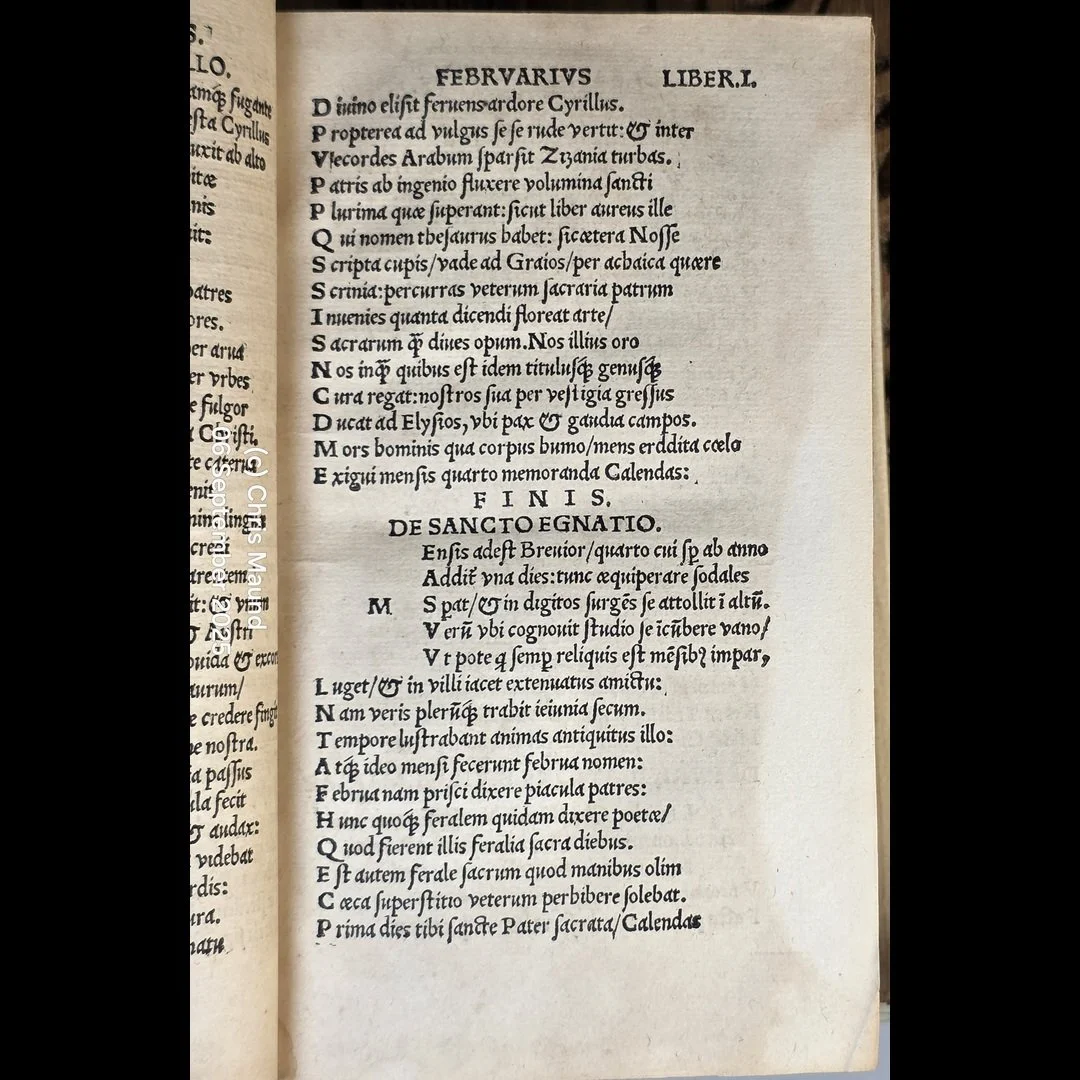 S.
LLO.
amq̃ fugante
esta Cyrillus
uxit ab alto
itæ
nis
it:
patres
ores.
er arua
er vrbes
e fulgor
Christi.
te caterua
enit
nim lingu
credi
arentem
it: & vnum
& Astri
ouida & excor
aurum/
e credere fingit
ne nostra.
ia passus
ula fecit
& audax:
videbat
rdis:
ura.
natu
FEBRVARIVS LIBER.I.
Diuino elisit feruens ardore Cyrillus.
Propterea ad vulgus se se rude vertit: & inter
Vecordes Arabum sparsit Zizania turbas.
Patris ab ingenio fluxere volumina sancti
Plurima quæ superant: sicut liber aureus ille
Qui nomen thesaurus habet: sicætera Nosse
Scripta cupis/vade ad Graios/per achaica quære
Scrinia: percurras veterum sacraria patrum
Inuenies quanta dicendi floreat arte/
Sacrarum q̃ diues opum. Nos illius oro
Nos inq̃ quibus est idem titulusq̃ genusq̃
Cura regat: nostros sua per vestigia gressus
Ducat ad Elysios, vbi pax & gaudia campos.
Mors hominis qua corpus humo/mens erddita cœlo
Exigui mensis quarto memoranda Calendas:
FINIS.
DE SANCTO EGNATIO.
Ensis adest Breuior/quarto cui sp̃ ab anno
Addit̃ vna dies: tunc æquiperare sodales
M Spat/& in digitos surgẽs se attollit ĩ altũ.
Verũ vbi cognouit studio se ĩcũbere vano/
Vt pote q semp reliquis est mẽsibꝫ impar,
Luget/& in villi iacet extenuatus amictu:
Nam veris plerũq̃ trahit ieiunia secum.
Tempore lustrabant animas antiquitus illo:
Atq̃ ideo mensi fecerunt februa nomen:
Februa nam prisci dixere piacula patres:
Hunc quoq̃ feralem quidam dixere poetæ/
Quod fierent illis feralia sacra diebus.
Est autem ferale sacrum quod manibus olim
Cæca superstitio veterum perhibere solebat.
Prima dies tibi sancte Pater sacrata/Calendas
(c) Chris Maund
06 September 2025